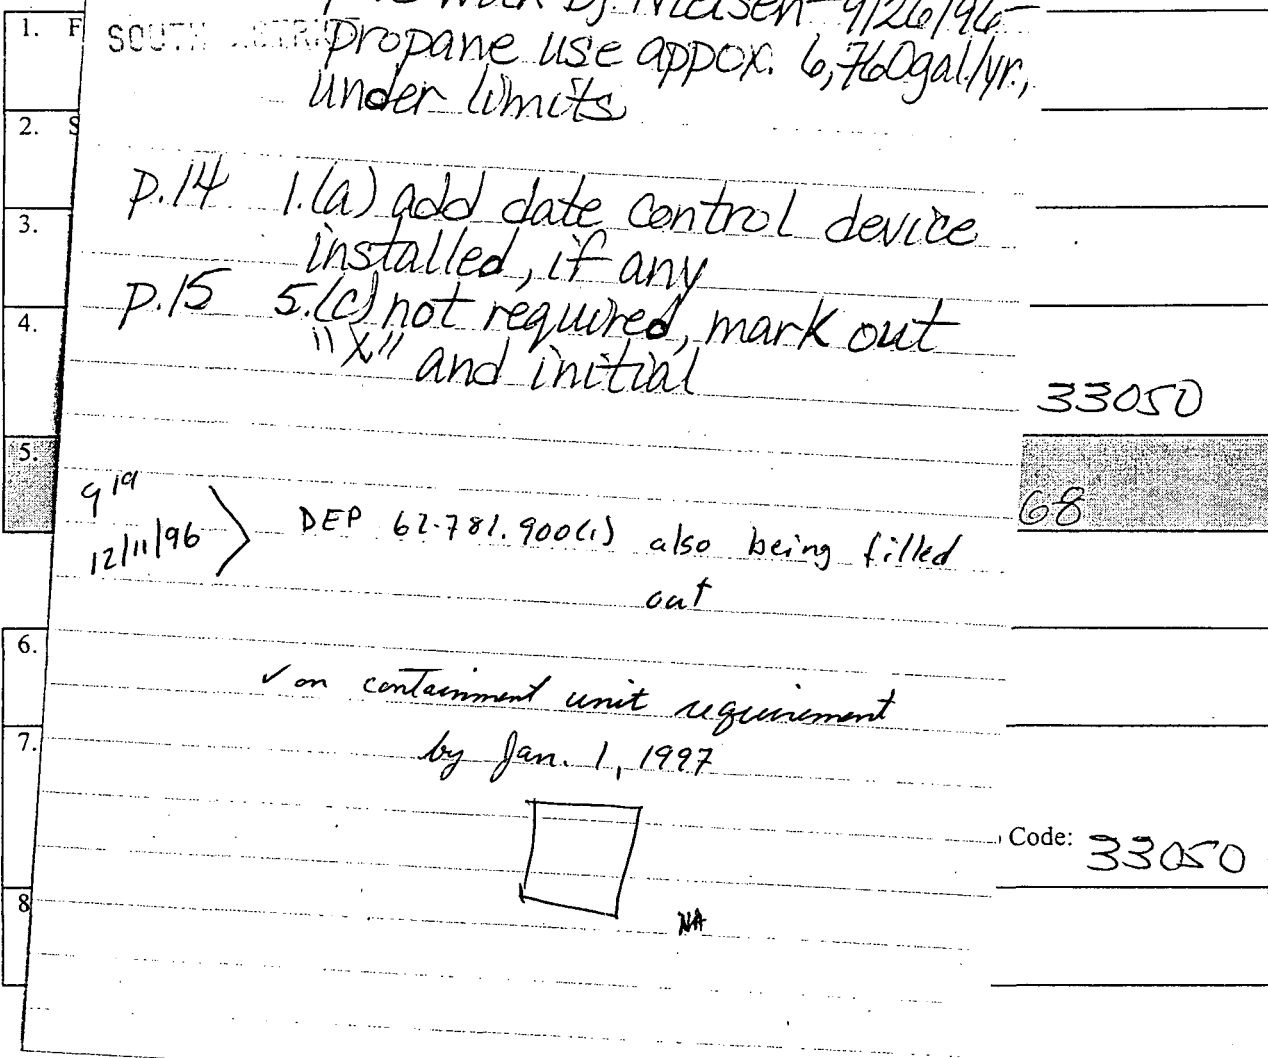 by Nielsen 9/26/96
1. F
SOUTH
propane use appox. 6,760gal./yr.,
under limits
2. S
p.14 1.(a) add date control device
3.
installed, if any
p.15 5.(c) not required, mark out
4.
"X" and initial
33050
5.
68
919
12/11/96 DEP 62-781.900(1) also being filled
out
6.
✓ on containment unit requirement
7.
by Jan. 1, 1997
Code: 33050
8
NA